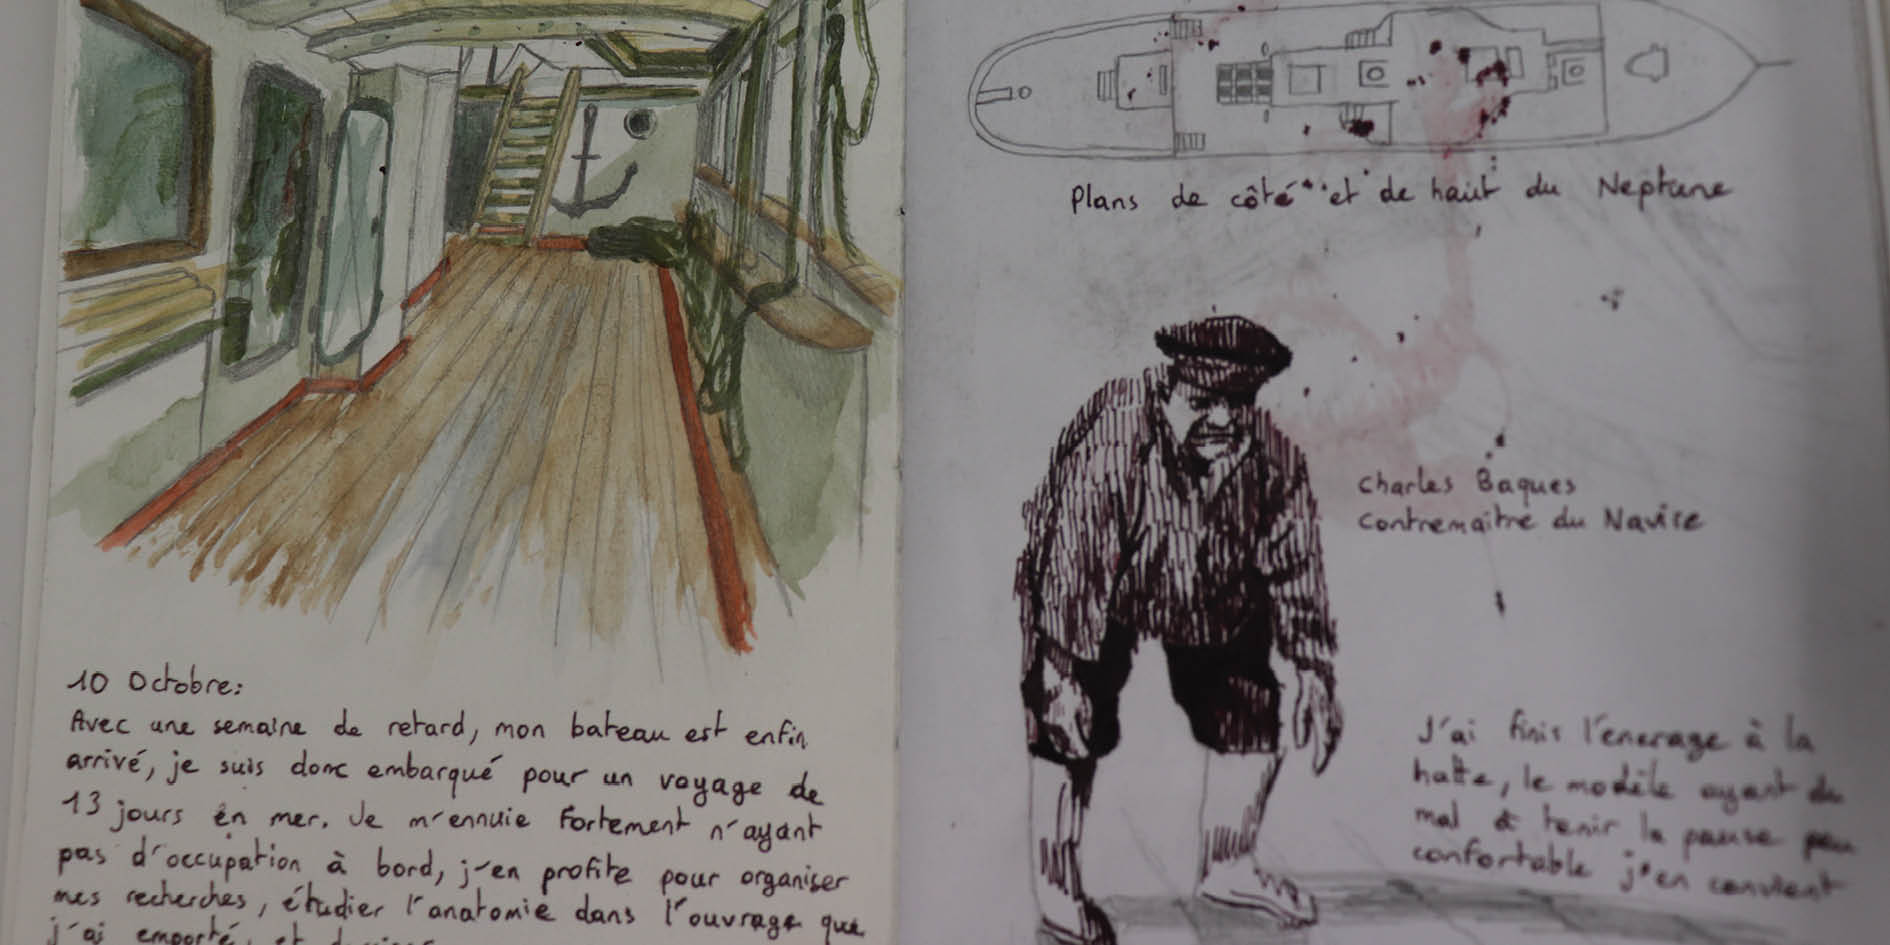 10 Octobre:
Avec une semaine de retard, mon bateau est enfin
arrivé, je suis donc embarqué pour un voyage de
13 jours en mer. Je m'ennuie fortement n'ayant
pas d'occupation à bord, j'en profite pour organiser
mes recherches, étudier l'anatomie dans l'ouvrage que
j'ai emporté, et
Plans de côté et de haut du Neptune
Charles Baques
Contremaitre du Navire
J'ai finis l'encrage à la
hatte, le modèle ayant du
mal à tenir la pause peu
confortable j'en convient